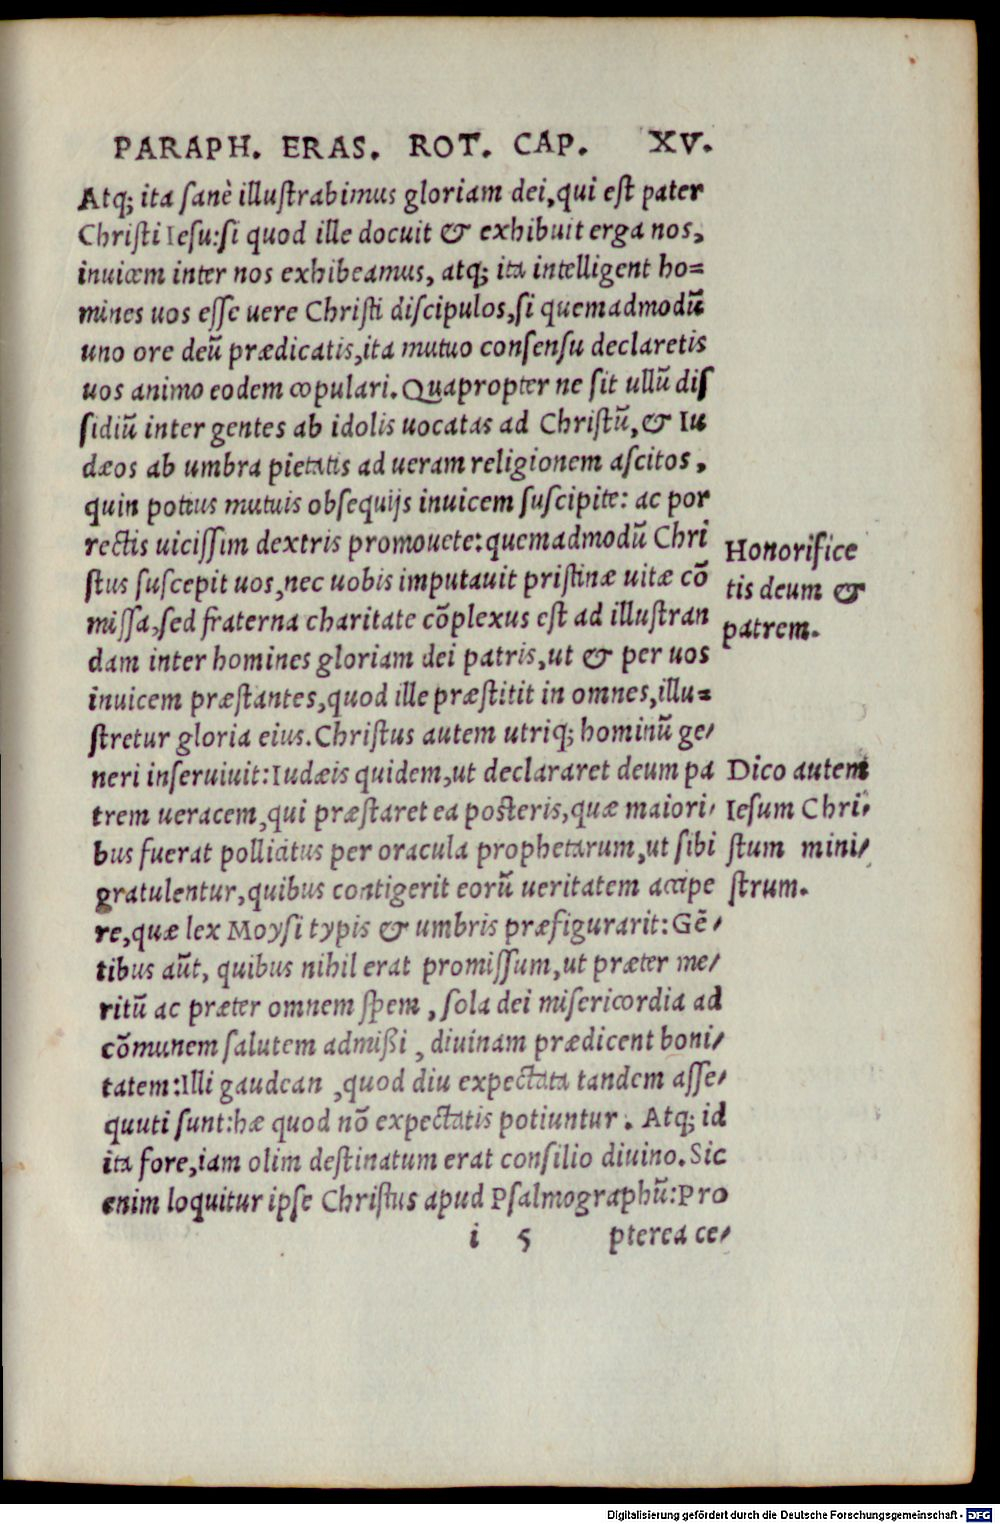 PARAPH. ERAS. ROT. CAP. XV.
Atq; ita sanè illuſtrabimus gloriam dei, qui eſt pater
Chriſti Ieſu: ſi quod ille docuit & exhibuit erga nos,
inuicem inter nos exhibeamus, atq; ita intelligent ho=
mines uos eſſe uere Chriſti diſcipulos, ſi quemadmodũ
uno ore deũ prædicatis, ita mutuo conſenſu declaretis
uos animo eodem copulari. Quapropter ne ſit ullũ diſ
ſidiũ inter gentes ab idolis uocatas ad Chriſtũ, & Iu
dæos ab umbra pietatis ad ueram religionem aſcitos,
quin potius mutuis obſequijs inuicem ſuſcipite: ac por
rectis uiciſſim dextris promouete: quemadmodũ Chri
ſtus ſuſcepit uos, nec uobis imputauit priſtinæ uitæ cõ
miſſa, ſed fraterna charitate cõplexus eſt ad illuſtran
dam inter homines gloriam dei patris, ut & per uos
inuicem præſtantes, quod ille præſtitit in omnes, illu=
ſtretur gloria eius. Chriſtus autem utriq; hominũ ge/
neri inſeruiuit: Iudæis quidem, ut declararet deum pa
trem ueracem, qui præſtaret ea poſteris, quæ maiori/
bus fuerat pollicitus per oracula prophetarum, ut ſibi
gratulentur, quibus contigerit eorũ ueritatem accipe
re, quæ lex Moyſi typis & umbris præfigurarit: Gẽ/
tibus aũt, quibus nihil erat promiſſum, ut præter me/
ritũ ac præter omnem ſpem, ſola dei miſericordia ad
cõmunem ſalutem admißi, diuinam prædicent boni/
tatem: Illi gaudean, quod diu expectata tandem aſſe/
quuti ſunt: hæ quod nõ expectatis potiuntur. Atq; id
ita fore, iam olim deſtinatum erat conſilio diuino. Sic
enim loquitur ipſe Chriſtus apud Pſalmographũ: Pro
i 5 pterea ce/
Honorifice
tis deum &
patrem.
Dico autem
Ieſum Chri/
ſtum mini/
ſtrum.
Digitalisierung gefördert durch die Deutsche Forschungsgemeinschaft - DFG